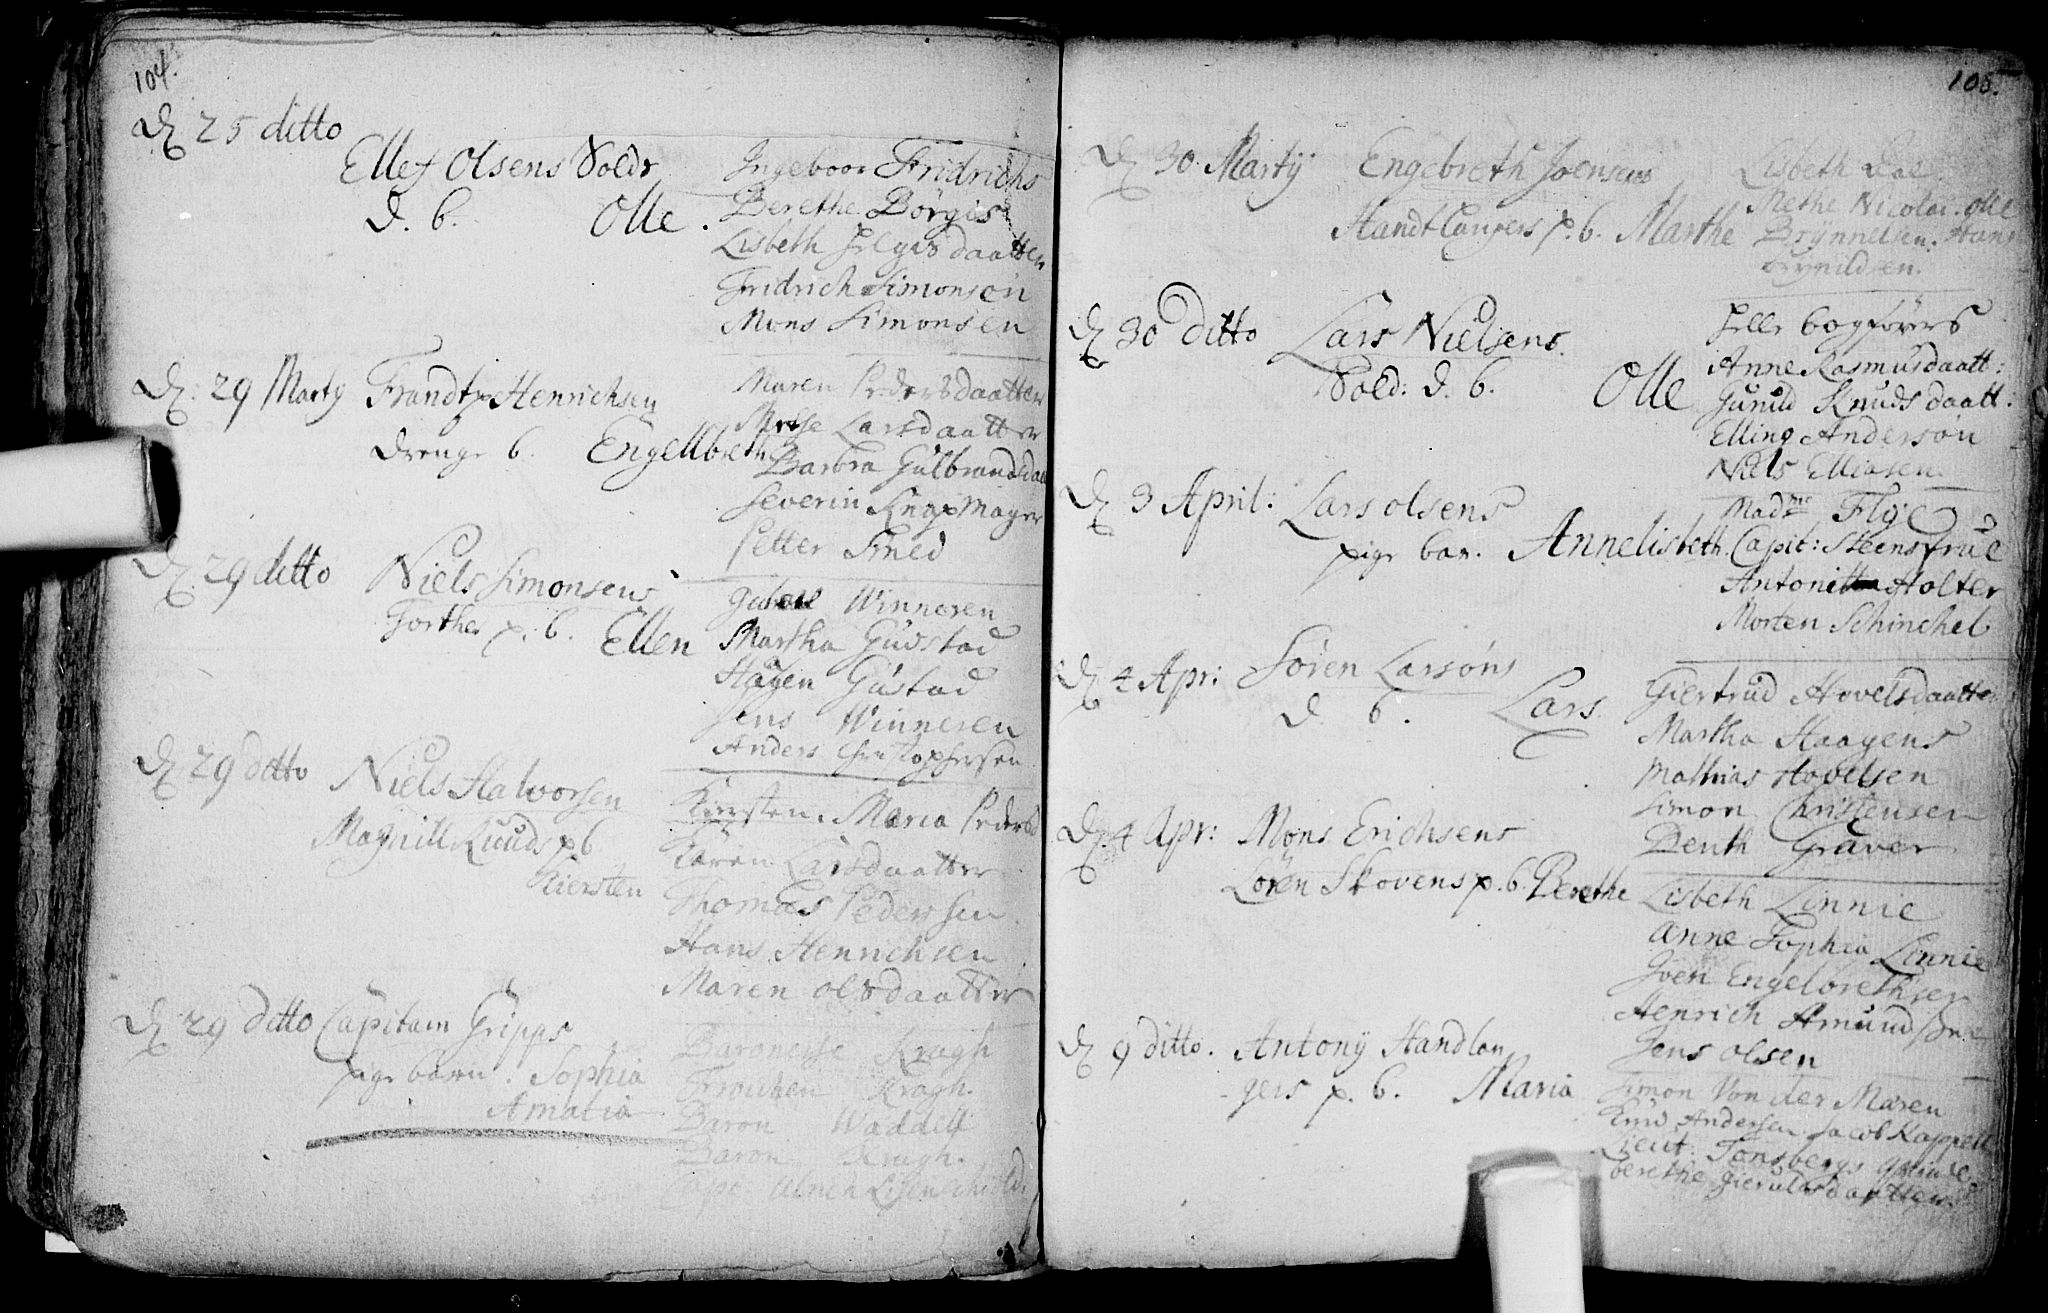 104.
D 25 ditto
Ellef Olsens Soldr
d. b. Olle.
Ingeboor Fridrichs
Berethe Börgis
Lisbeth Helgis daatter
Fridrich Simonsen
Mons Simonsen
D: 29 Marty Frandtz Henrichsen
drenge b. Engellbreth
Maren Pedersdaatter
Mette Larsdaatter
Barbra Gulbrandsdaa
Severin Knapmager
Petter Smed
D 29 ditto Niels Simonsens
p. b. Ellen
Winneren
Martha Gudstad
Haagen Gustad
Jens Winneren
Anders Christophersen
D 29 ditto Niels Halvorsen
Magnill Ruuds p b
Kiersten
Kirsten Maria Peders
Karen Larsdaatter
Thomas Pedersen
Hans Henrichsen
Maren olsdaatter
D 29 ditto Capitain Gripps
pige barn. Sophia
Amalia
Baronesse Kragh
Frouchen Kragh.
Baron Waddell
Baron Kragh.
105.
D 30 Martij Engebreth Joensens
Handtlangers p. b. Marthe
Lisbeth Dal
Methe Nicolai. olle
Brynnelsen. Hans
brynildsen.
D 30 Ditto Lars Nielsens
Sold: d. b. Olle
Pelle bogförers
Anne Rasmusdaatt:
Gunild Knuds daatt.
Elling Anderson
Niels Elliasen
D 3 April: Lars olsens
pige bar. Annelisbeth.
Madme Flye
Capit: Steens frue
Holter
Morten Schinchel
D 4 Apr: Sören Larsöns
d b. Lars.
Giertrud Hovelsdaatter
Martha Haagens
Mathias Hovelsen
Simon Christensen
Benth Graver
D. 4 Apr: Mons Erichsens
Lören Skovens p. b. Berethe
Lisbeth Linnie
Anne Sophia Linnie
Joen Engelbrethsen
Henrich Amundsen
Jens olsen
D 9 ditto. Antony Handlan
gers p. b. Maria
Simon Von der Maren
Knud Andersen Jacob Kappell
Lieut. Tonsbergs
berethe Gierulsdaatter